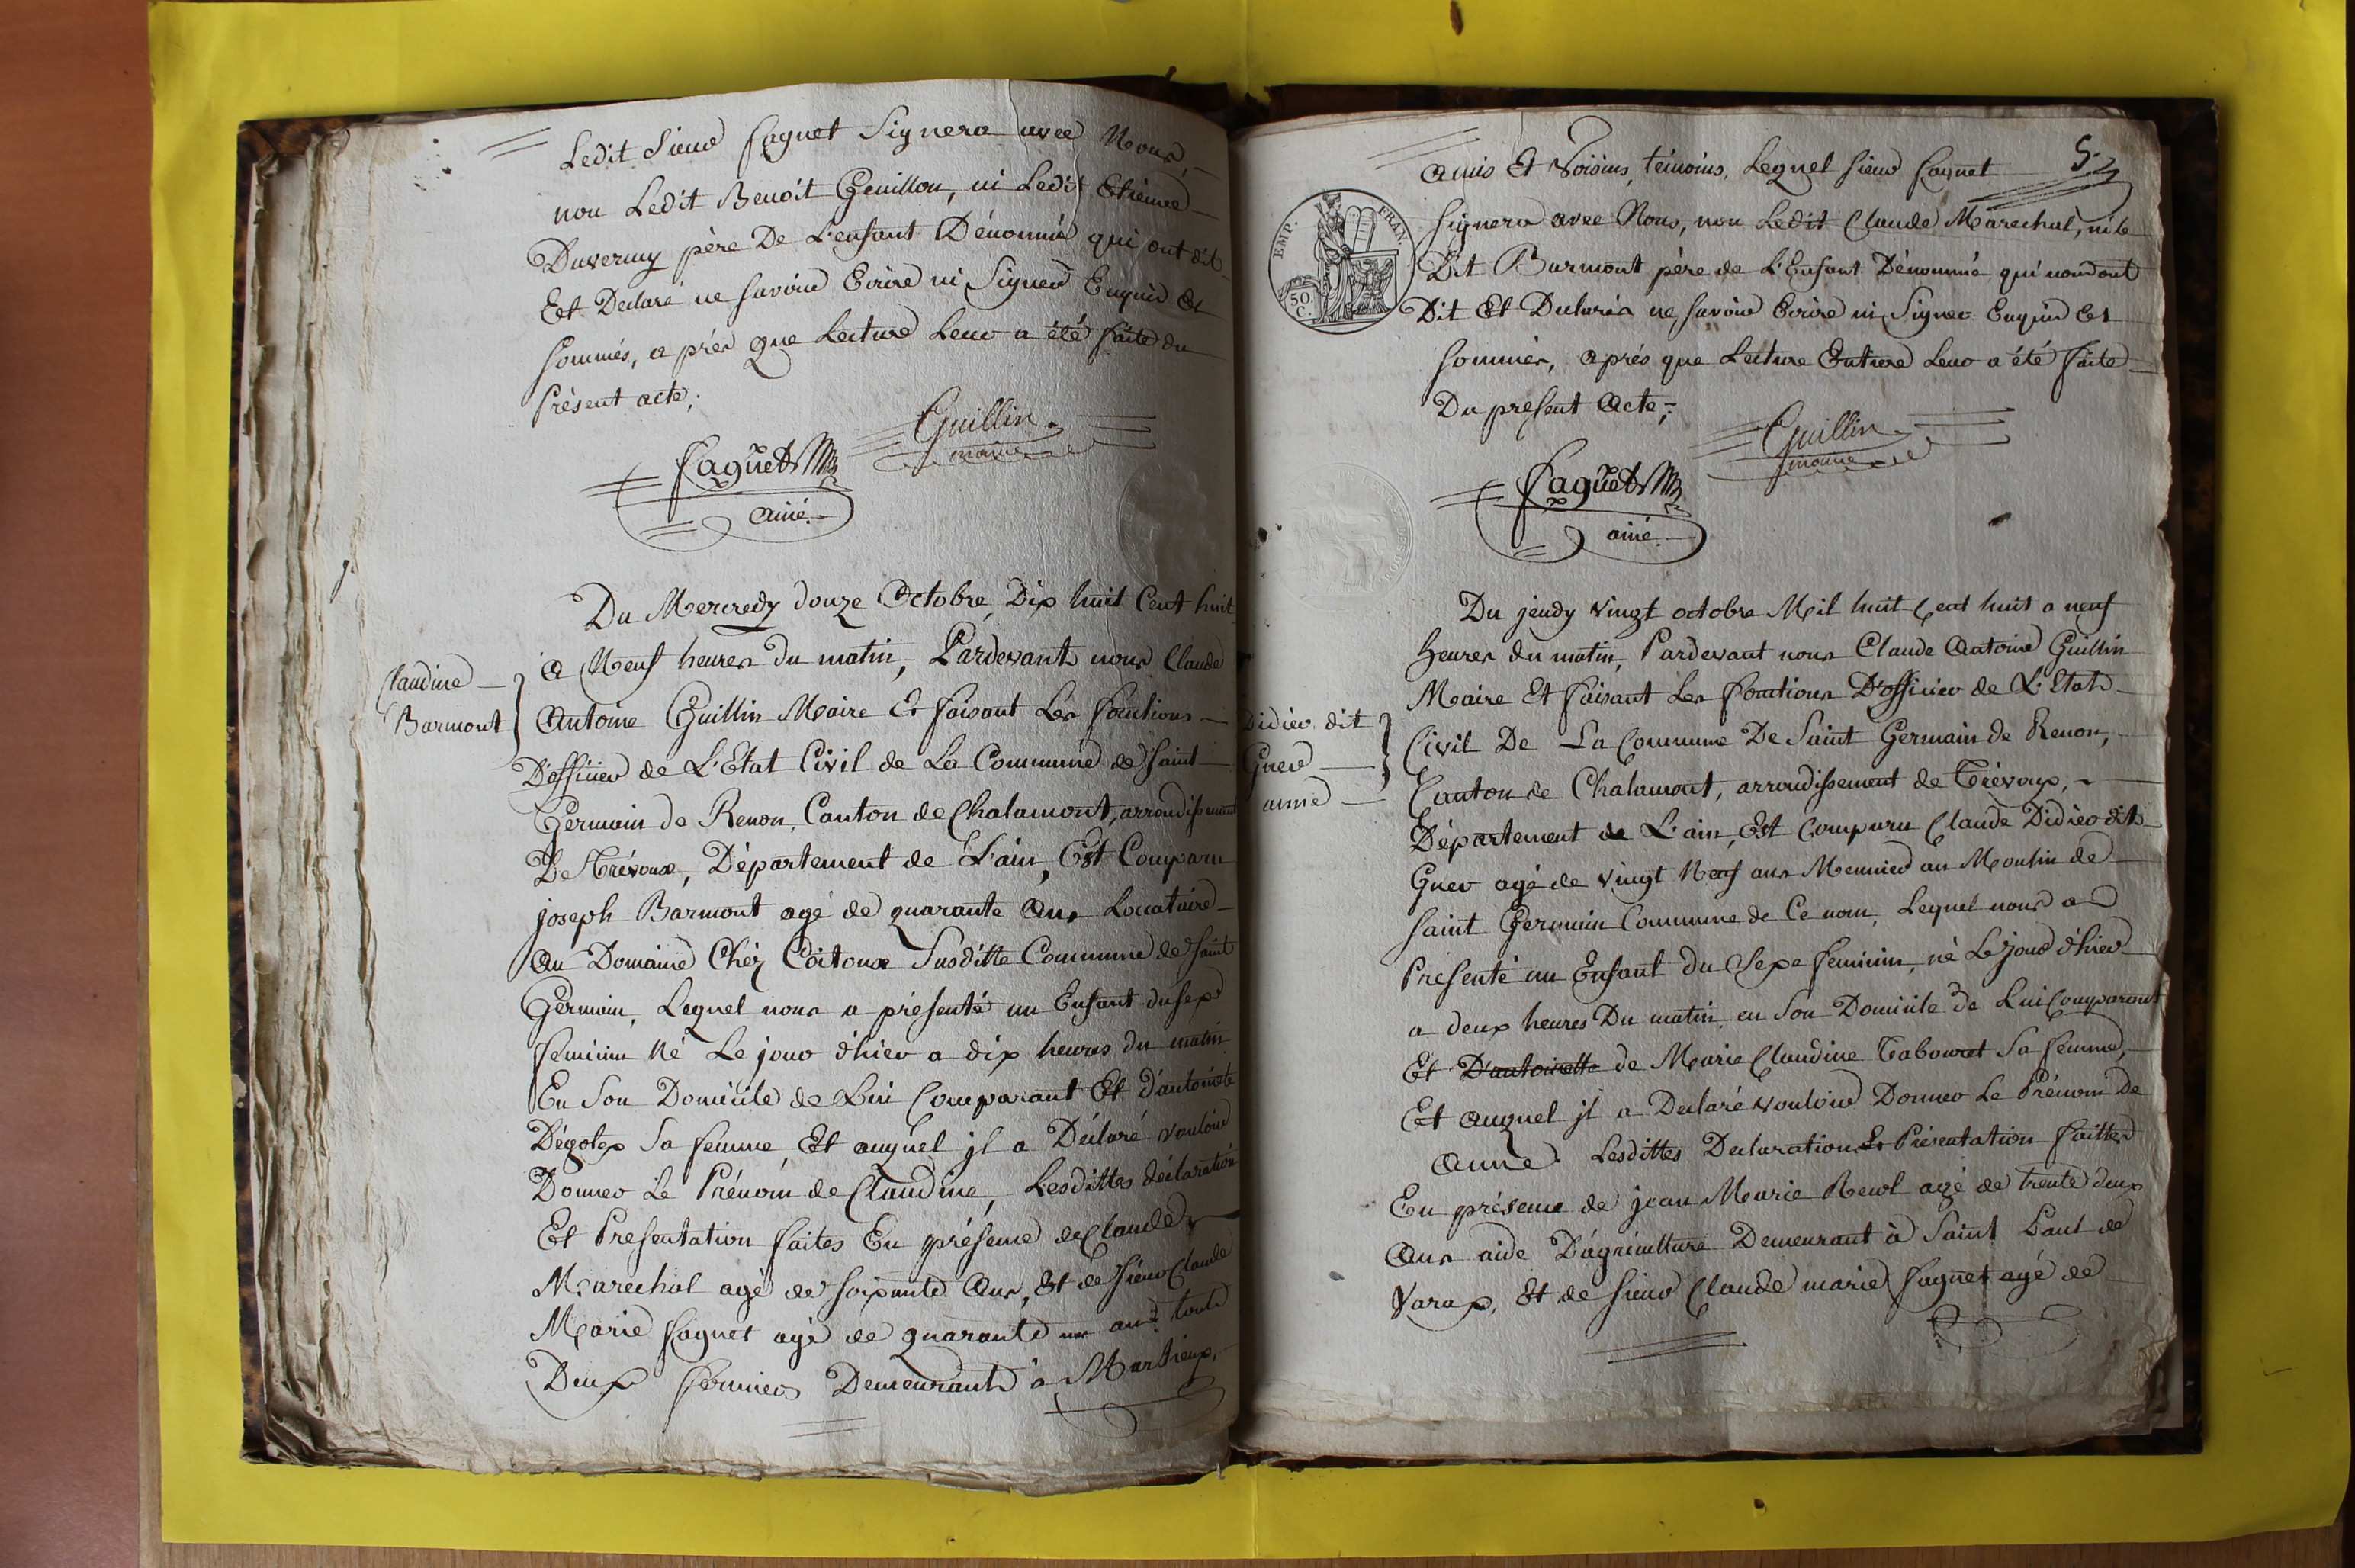 Ledit Sieur Faguet Signera avec Nous,
non Ledit Benoit Guillon, ni Ledit Etienne
Duverny père De L'enfant Dénommé qui ont dit
Et Declaré ne savoir Ecrire ni Signer Enquis Et
sommés, après que Lecture Leur a été faite du
Présent acte;
Guillin
maire
Faguet
ainé
Du Mercredy douze Octobre Dix huit Cent huit
a Neuf heures du matin, Pardevant nous Claude
Claudine
Barmont
Antoine Guillin Maire Et faisant Les fonctions
D'officier de L'Etat Civil de La Commune de Saint
Germain de Renon, Canton de Chalamont, arrondissement
De Trévoux, Département de L'ain, Est Comparu
joseph Barmont agé de quarante Ans Locataire
au Domaine Chéz Coitoux Susditte Commune de Saint
Germain, Lequel nous a présenté un Enfant du sexe
feminin Né Le jour d'hier a dix heures du matin
En Son Domicile de Lui Comparant Et d'antoinette
Dégolex Sa femme, Et auquel jl a Déclaré vouloir
Donner Le Prénom de Claudine, Lesdittes déclaration
Et Presentation faites En présence de Claude
Marechal agé de soixante Ans, Et de Sieur Claude
Marie Faguet agé de quarante un ans touts
Deux fermiers Demeurants à Marlieux,
5
amis Et Voisins, témoins, Lequel Sieur Faguet
EMP. FRAN.
50.
C.
signera avec Nous, non Ledit Claude Marechal, ni le
Dit Barmont père de L'Enfant Dénommé qui nous ont
Dit Et Declarés ne savoir Ecrire ni Signer Enquis Et
sommés, après que Lecture Entiere Leur a été faite
Du present Acte;
Guillin
maire
Faguet
ainé
Du jeudy vingt octobre Mil huit Cent huit a neuf
heures du matin, Pardevant nous Claude Antoine Guillin
Maire Et faisant Les fonctions D'officier de L'Etat
Didier dit
Guer
anne
Civil De La Commune De Saint Germain de Renon,
Canton de Chalamont, arrondissement de Trévoux,
Département de L'ain, Est Comparu Claude Didier dit
Guer agé de vingt Neuf ans Meunier au Moulin de
Saint Germain Commune de Ce nom, Lequel nous a
Presenté un Enfant du Sexe feminin, né Le jour d'hier
a deux heures Du matin, en Son Domicile de Lui Comparant
Et D'antoinette de Marie Claudine Tabouret Sa femme,
Et auquel jl a Declaré vouloir Donner Le Prénom De
Anne. Lesdittes Declaration Et Présentation faittes
En présence de jean Marie Revol agé de trente deux
Ans aide D'agriculture Demeurant à Saint Paul de
Varax, Et de Sieur Claude marie Faguet agé de